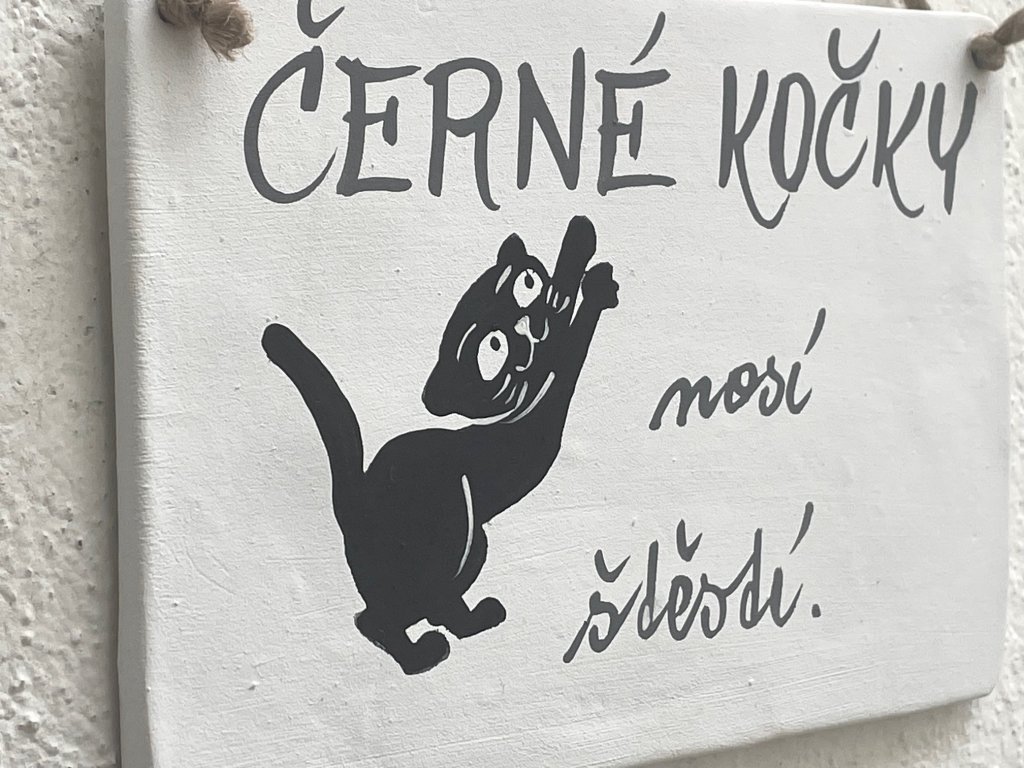 ČERNÉ KOČKY
nosí
štěstí.